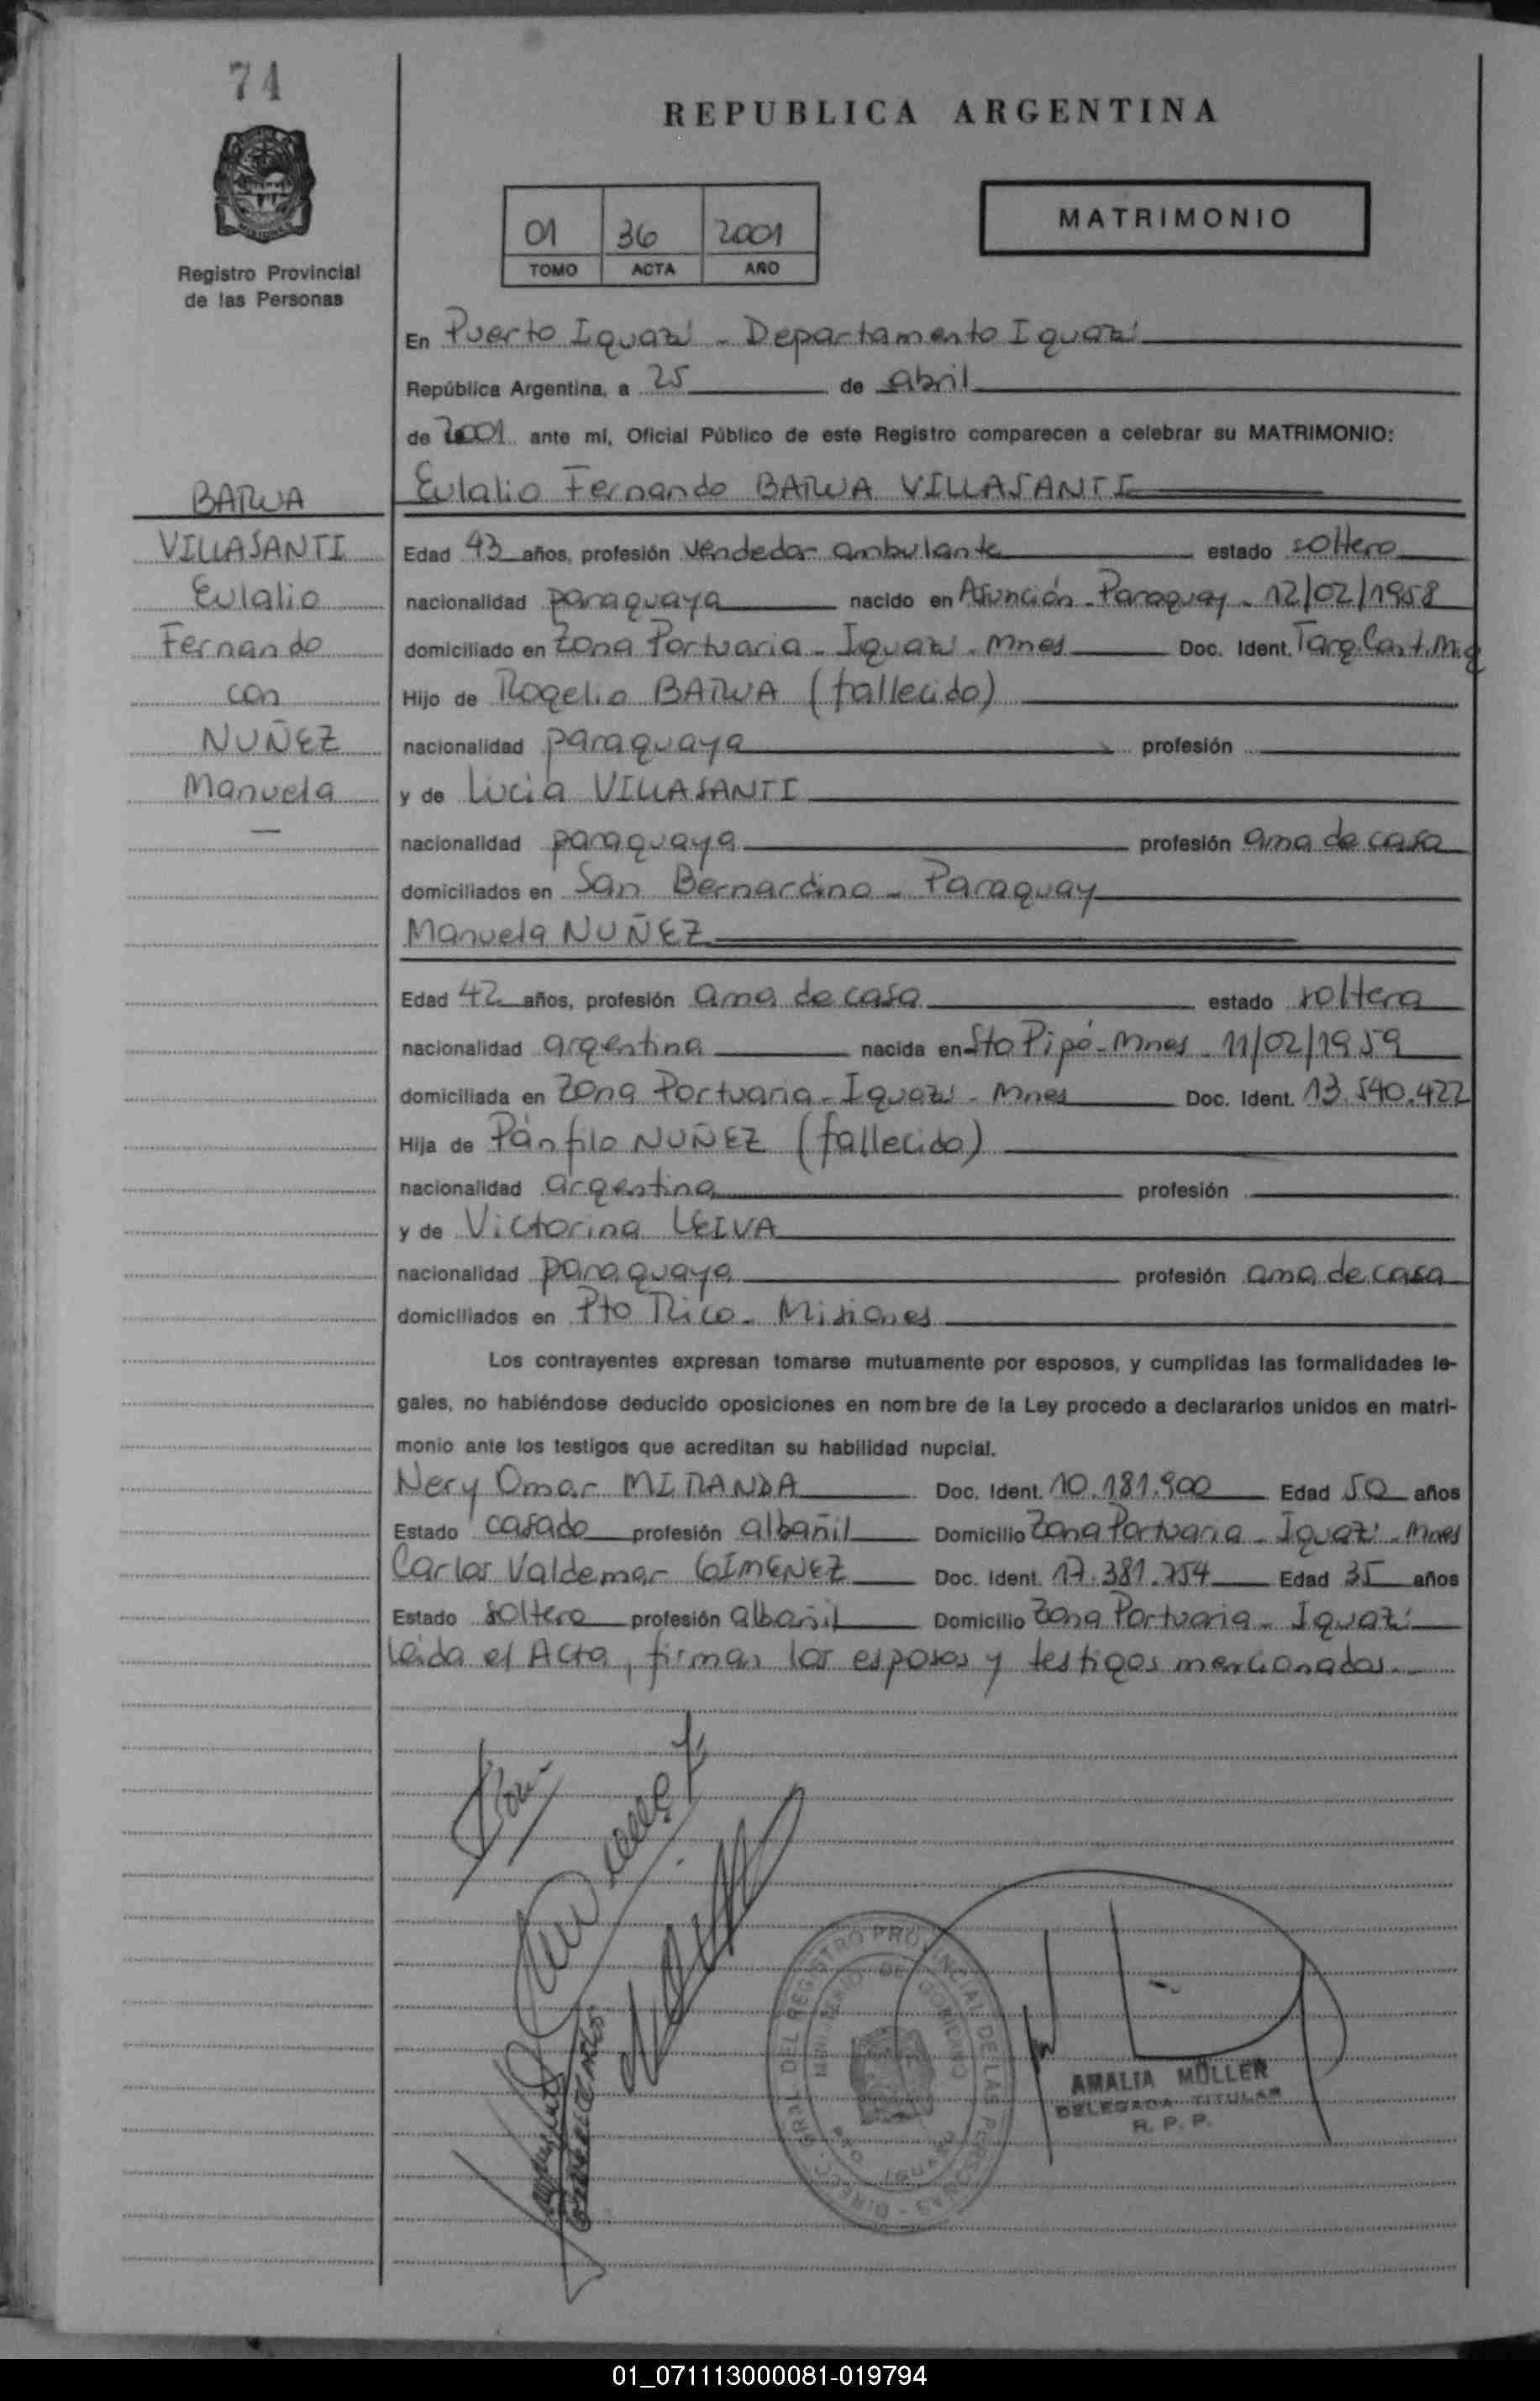 74
REPUBLICA ARGENTINA
Registro Provincial
de las Personas
01 36 2001
TOMO ACTA AÑO
MATRIMONIO
En Puerto Iguazú - Departamento Iguazú
República Argentina, a 25 de abril
de 2001 ante mí, Oficial Público de este Registro comparecen a celebrar su MATRIMONIO:
Eulalio Fernando BARUA VILLASANTI
BARUA
VILLASANTI
Eulalio
Fernando
con
NUÑEZ
Manuela
—
Edad 43 años, profesión vendedor ambulante estado soltero
nacionalidad paraguaya nacido en Asunción - Paraguay - 12/02/1958
domiciliado en Zona Portuaria - Iguazú - Mnes Doc. Ident. Targ.
Hijo de Rogelio BARUA (fallecido)
nacionalidad paraguaya profesión
y de Lucia VILLASANTI
nacionalidad paraguaya profesión ama de casa
domiciliados en San Bernardino - Paraguay
Manuela NUÑEZ
Edad 42 años, profesión ama de casa estado soltera
nacionalidad argentina nacida en Sto Pipó - Mnes - 11/02/1959
domiciliada en Zona Portuaria - Iguazú - Mnes Doc. Ident. 13.540.422
Hija de Pánfilo NUÑEZ (fallecido)
nacionalidad argentina profesión
y de Victorina LEIVA
nacionalidad paraguaya profesión ama de casa
domiciliados en Pto Rico - Misiones
Los contrayentes expresan tomarse mutuamente por esposos, y cumplidas las formalidades le-
gales, no habiéndose deducido oposiciones en nombre de la Ley procedo a declararlos unidos en matri-
monio ante los testigos que acreditan su habilidad nupcial.
Nery Omar MIRANDA Doc. Ident. 10.181.900 Edad 50 años
Estado casado profesión albañil Domicilio Zona Portuaria - Iguazú - Mnes
Carlos Valdemar GIMENEZ Doc. Ident. 17.381.754 Edad 35 años
Estado soltero profesión albañil Domicilio Zona Portuaria - Iguazú
Leída el Acta, firman los esposos y testigos mencionados.
DIRECC. GRAL. DEL REGISTRO PROVINCIAL DE LAS PERSONAS
MINISTERIO DE GOBIERNO
IGUAZU
AMALIA MÜLLER
DELEGADA TITULAR
R. P. P.
01_071113000081-019794